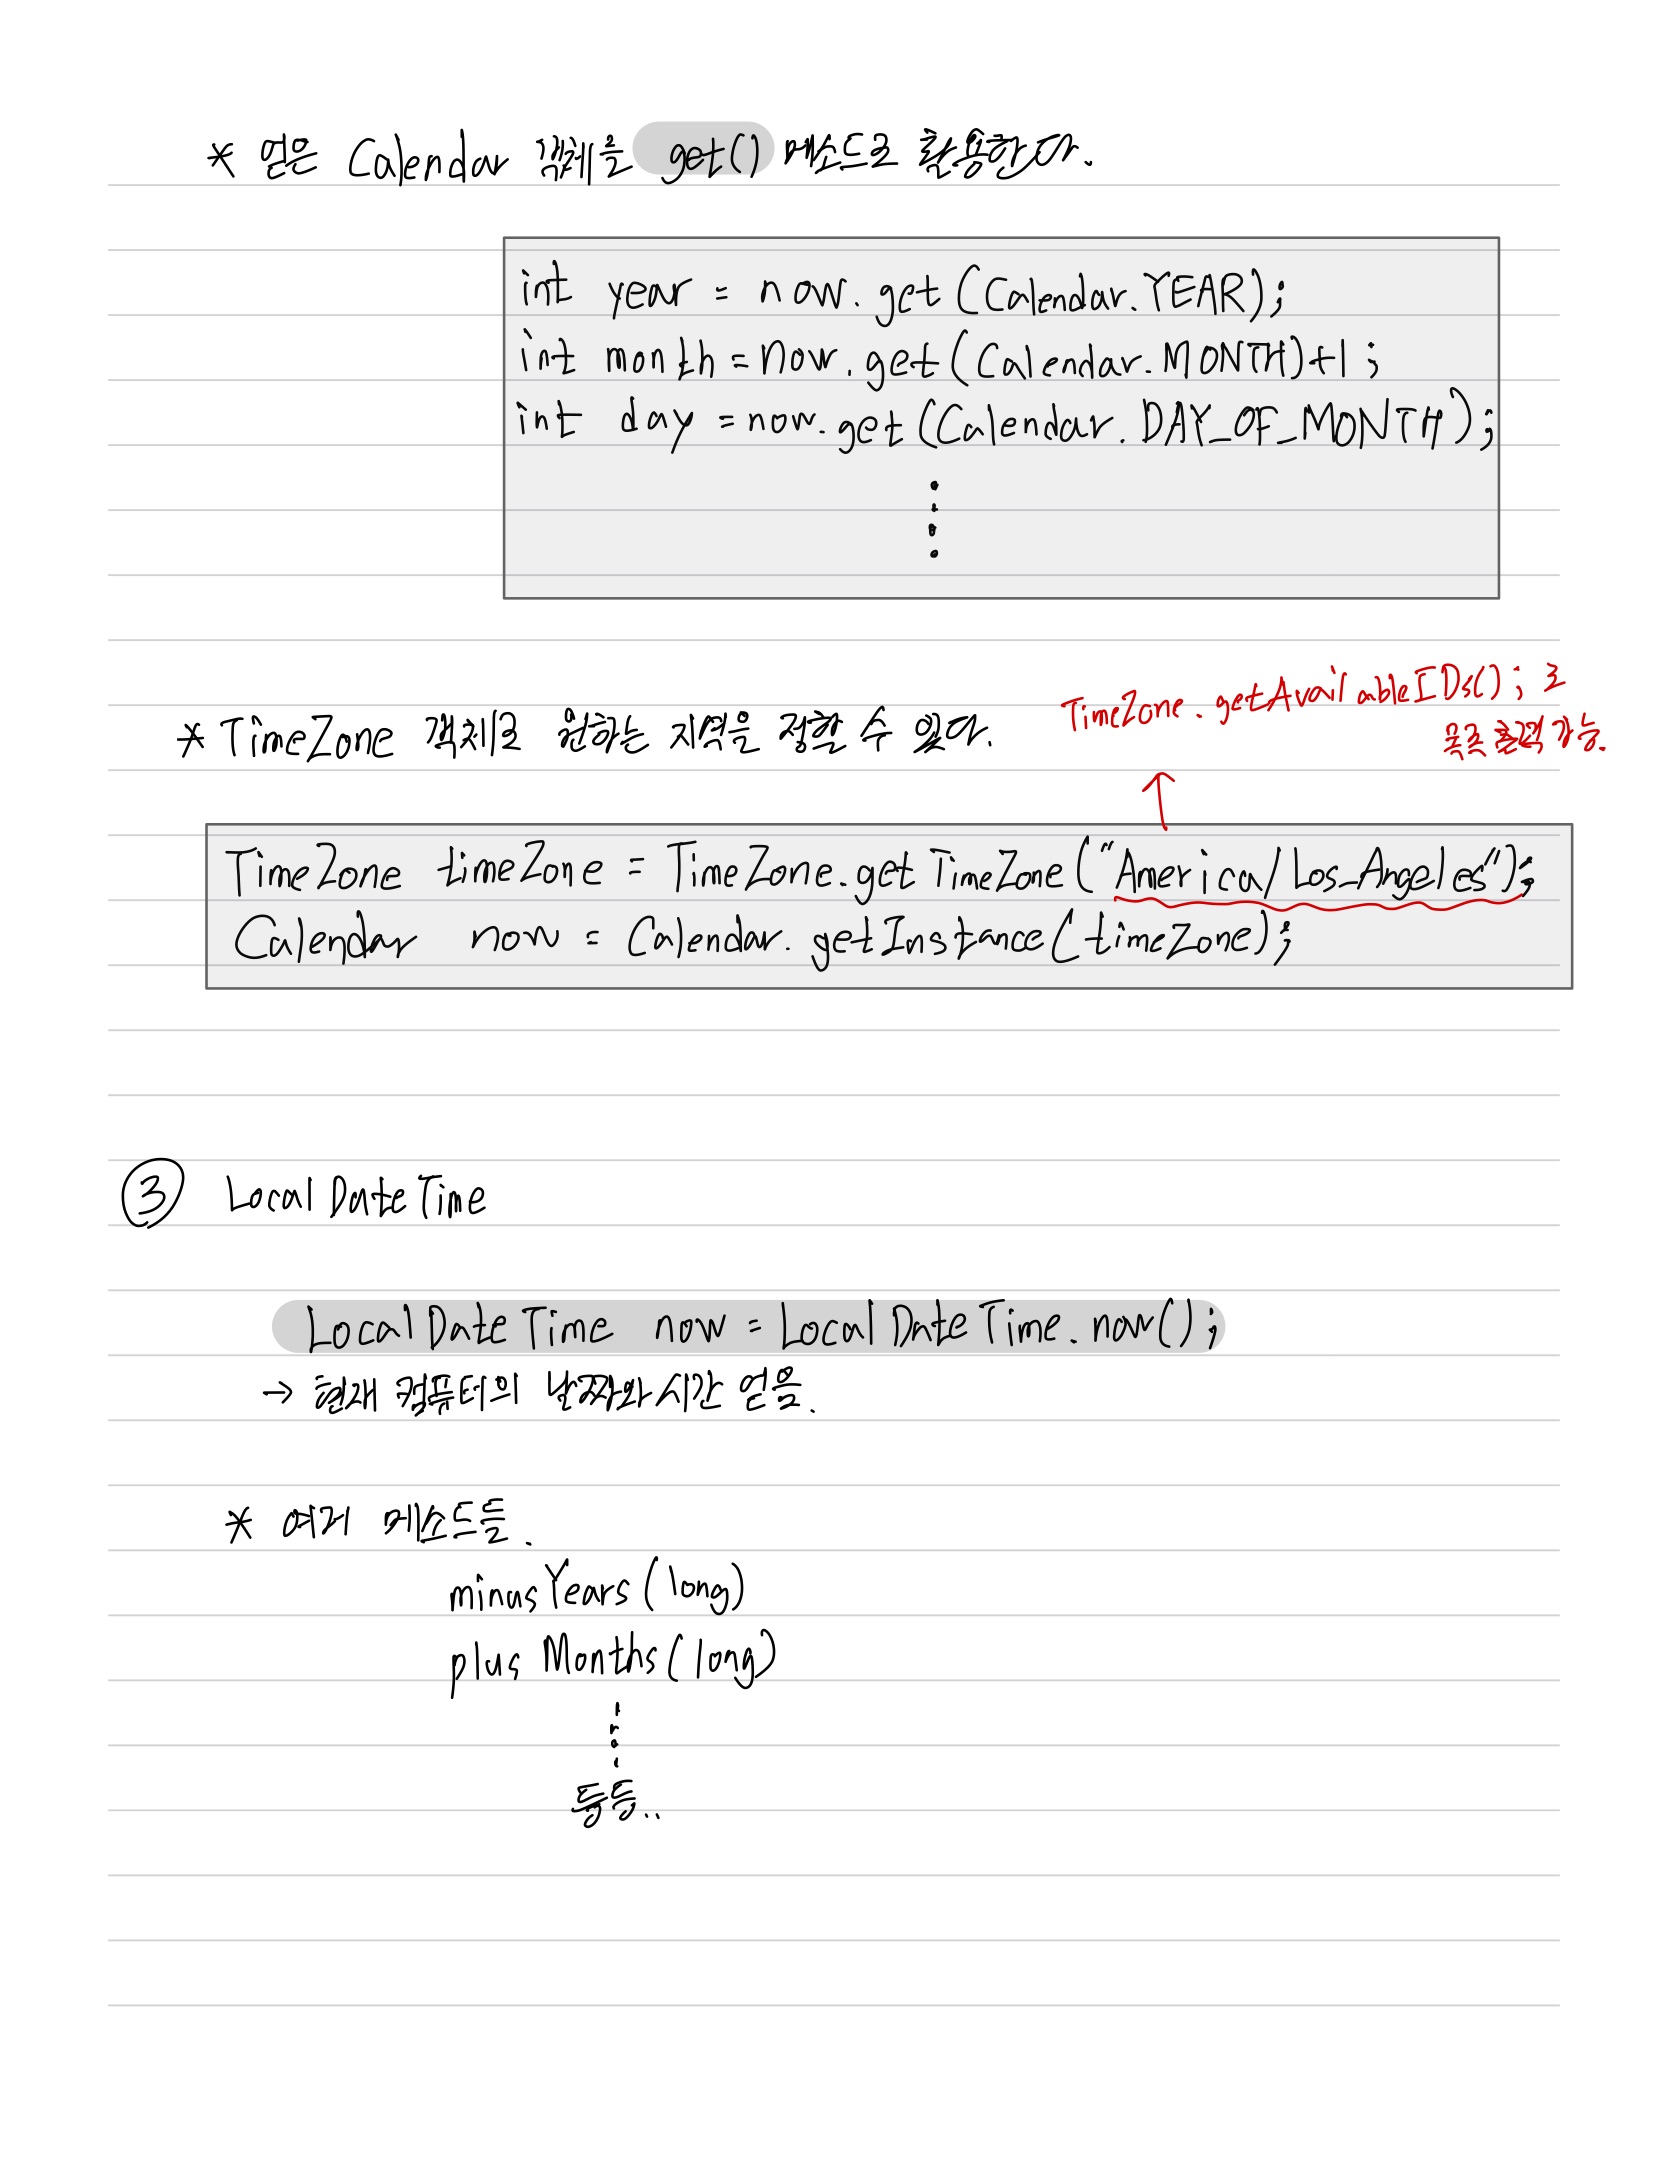 * 얻은 Calendar 객체를 get() 메소드로 활용한다.
int year = now.get(Calendar.YEAR);
int month = now.get(Calendar.MONTH)+1;
int day = now.get(Calendar.DAY_OF_MONTH);
TimeZone.getAvailableIDs(); 로
목록 출력 가능.
* TimeZone 객체로 원하는 지역을 정할 수 있다.
↑
TimeZone timeZone = TimeZone.getTimeZone("America/Los_Angeles");
Calendar now = Calendar.getInstance(timeZone);
③ LocalDateTime
LocalDateTime now = LocalDateTime.now();
→ 현재 컴퓨터의 날짜와 시간 얻음.
* 여러 메소드들.
minusYears(long)
plusMonths(long)
등등..